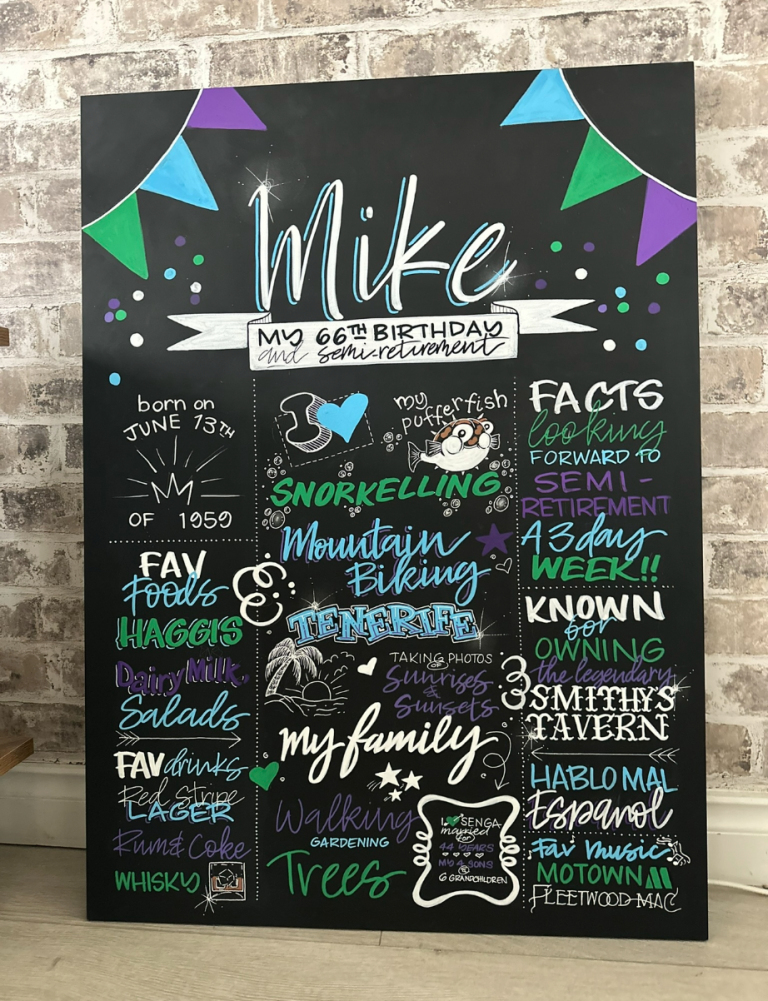 Mike
MY 66TH BIRTHDAY
and semi-retirement
born on
JUNE 13TH
OF 1959
FAV
Foods
HAGGIS
Dairy Milk,
Salads
FAV drinks
Red Stripe
LAGER
Rum & Coke
WHISKY
I
my
pufferfish
SNORKELLING
Mountain
Biking
TENERIFE
TAKING PHOTOS
OF
Sunrises
&
Sunsets
my family
Walking
GARDENING
Trees
I SENGA
married
for
44 YEARS
MY 4 SONS
6 GRANDCHILDREN
FACTS
looking
FORWARD TO
SEMI-
RETIREMENT
A 3 day
WEEK!!
KNOWN
for
OWNING
the legendary
SMITHY'S
TAVERN
HABLO MAL
Espanol
Fav music
MOTOWN
FLEETWOOD MAC